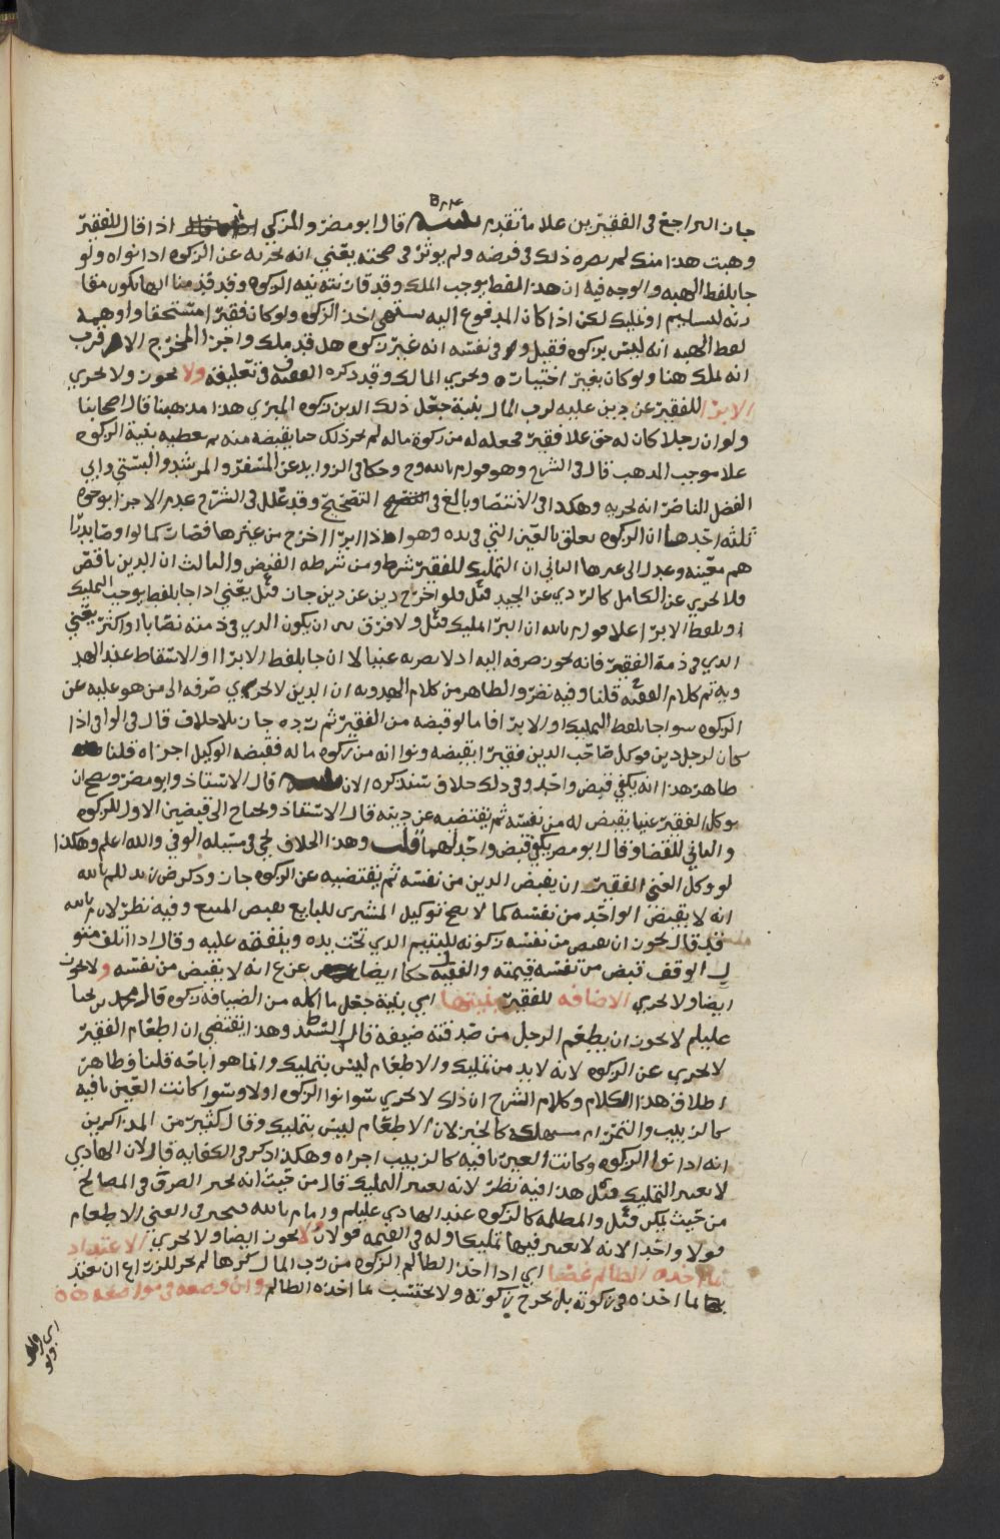 جاز التراجع فى الفقيرين علا ما تقدم تنبيه قال ابو مضر والمزكي اذا قال للفقير
وهبت هذا منك لم يضره ذلك فى فرضه ولم يوثر فى صحته يعني انه يجزيه عن الزكوه اذا نواه ولو
جا بلفظ الهبه والوجه فيه ان هذا اللفظ يوجب الملك وقد قارنته نيه الزكوه وقد قدمنا انها تكون مقا
رنه لتسليم او تمليك لكن اذا كان المدفوع اليه يستهي اخذ الزكوه ولو كان فقيرا مستحقا واوهمه
لفظ الهبه انه ليس بزكوه فقبل فى نفسه انه غير زكوه هل قد ملك واجزا المخرج الاقرب
انه ملك هنا ولو كان بغير اختياره ويجزي المالك وقد ذكره الفقيه ف فى تعليقه ولا يجوز ولا يجزي
الابرا للفقير عن دين عليه لرب المال بنية جعل ذلك الدين زكوه المبري هذا مذهبنا قال اصحابنا
ولو ان رجلا كان له حق علا فقير فجعله له من زكوة ماله لم يجز ذلك حتا يقبضه منه ثم يعطيه بنية الزكوه
علا موجب المذهب قال فى الشرح وهو قول م بالله وح وحكا فى الزوايد عن المسفر والمرشد والبستي وابي
الفضل الناصر انه يجزيه وهكذا فى الانتصار وبالغ فى التصحيح وقد علل فى الشرح عدم الاجزا بوجوه
ثلثه احدها ان الزكوه تعلق بالعين التي فى يده وهو اذا ابرا اخرج من غيرها فصار كما لو اوصا بدرا
هم معينه وعدل الى غيرها الثاني ان التمليك للفقير شرط ومن شرطه القبض والثالث ان الدين ناقص
فلا يجزي عن الكامل كالردي عن الجيد قيل فلو اخرج دين عن دين جاز قيل يعني اذا جا بلفظ يوجب التمليك
او بلفظ الابرا علا قول م بالله ان البرا تمليك قيل ولا فرق بين ان يكون الدي فى ذمته نصابا او اكثر يعني
الدي فى ذمة الفقير فانه يجوز صرفه اليه اذ لا يصر به غنيا الا ان جا بلفظ الابرا او الاسقاط عند الهد
ويه تم كلام الفقيه قلنا وفيه نظر والظاهر من كلام الهدويه ان الدين لا يجزي صرفه الى من هو عليه عن
الزكوه سوا جا بلفظ التمليك او الابرا فاما لو قبضه من الفقير ثم رده جاز بلا خلاف قال فى الوافى اذا
كان لرجل دين فوكل صاحب الدين فقيرا بقبضه ونوا انه من زكوه ماله فقبضه الوكيل اجزاه قلنا
ظاهر هذا انه يكفي قبض واحد وفى ذلك خلاف سنذكره الان تنبيه قال الاستاذ وابو مضر ويصح ان
يوكل الفقير غنيا بقبض له من نفسه ثم يقتضيه عن دينه قال الاستاذ ويحتاج الى قبضين الاول للزكوه
والثاني للقضا وقال ابو مضر يكفي قبض واحد لهما قلت وهذا الخلاف يجي فى مسئله الوافي والله اعلم وهكذا
لو وكل الغني الفقير ان يقبض الدين من نفسه ثم يقتضيه عن الزكوه جاز وذكر ض زيد للم بالله
انه لا يقبض الواحد من نفسه كما لا يصح توكيل المشترى للبايع بقبض المبيع وفيه نظر لان م بالله
قد قال يجوز ان يقبض من نفسه زكوته لليتيم الذي تحت يده وينفقه عليه وقال اذا اتلف متو
لي الوقف قبض من نفسه قيمته والفقيه حكا ايضا عن ع انه لا يقبض من نفسه ولا يجوز
ايضا ولا يجزي الاضافه للفقير بنيتها اي بنية جعل ما اكله من الضيافة زكوه قال محمد بن يحيا
عليلم لا يجوز ان يطعم الرجل من صدقته ضيفه قال السيد ط وهذا يقتضي ان اطعام الفقير
لا يجزي عن الزكوه لانه لا بد من تمليك والاطعام ليس بتمليك وانما هو اباحه قلنا وظاهر
اطلاق هذا الكلام وكلام الشرح ان ذلك لا يجزي سوا نوا الزكوه او لا وسوا كانت العين باقيه
كالزبيب والتمر ام مستهلكه كالخبز لان الاطعام ليس بتمليك وقال كثير من المذاكرين
انه اذا نوا الزكوه وكانت العين باقيه كالزبيب اجزاه وهكذا ذكر فى الكفايه قال لان الهادي
لا يعتبر التمليك قيل هذا فيه نظر لانه يعتبر التمليك قال من حيث انه يجيز الصرف فى المصالح
من حيث يمكن قيل والمظلمه كالزكوه عند الهادي عليلم وامام بالله فيجيز فى الغني الاطعام
قولا واحدا لانه لا يعتبر فيها تمليكا وله فى القيمه قولان ولا يجوز ايضا ولا يجزي الاعتداد
بما اخذه الظالم غصبا اي اذا اخذ الظالم الزكوه من رب المال كرها لم يجز للزراع ان يعتد
بما اخذه فى زكوته بل يخرج زكوته ولا يحتسب بما اخذه الظالم وان وضعه فى مواضعه